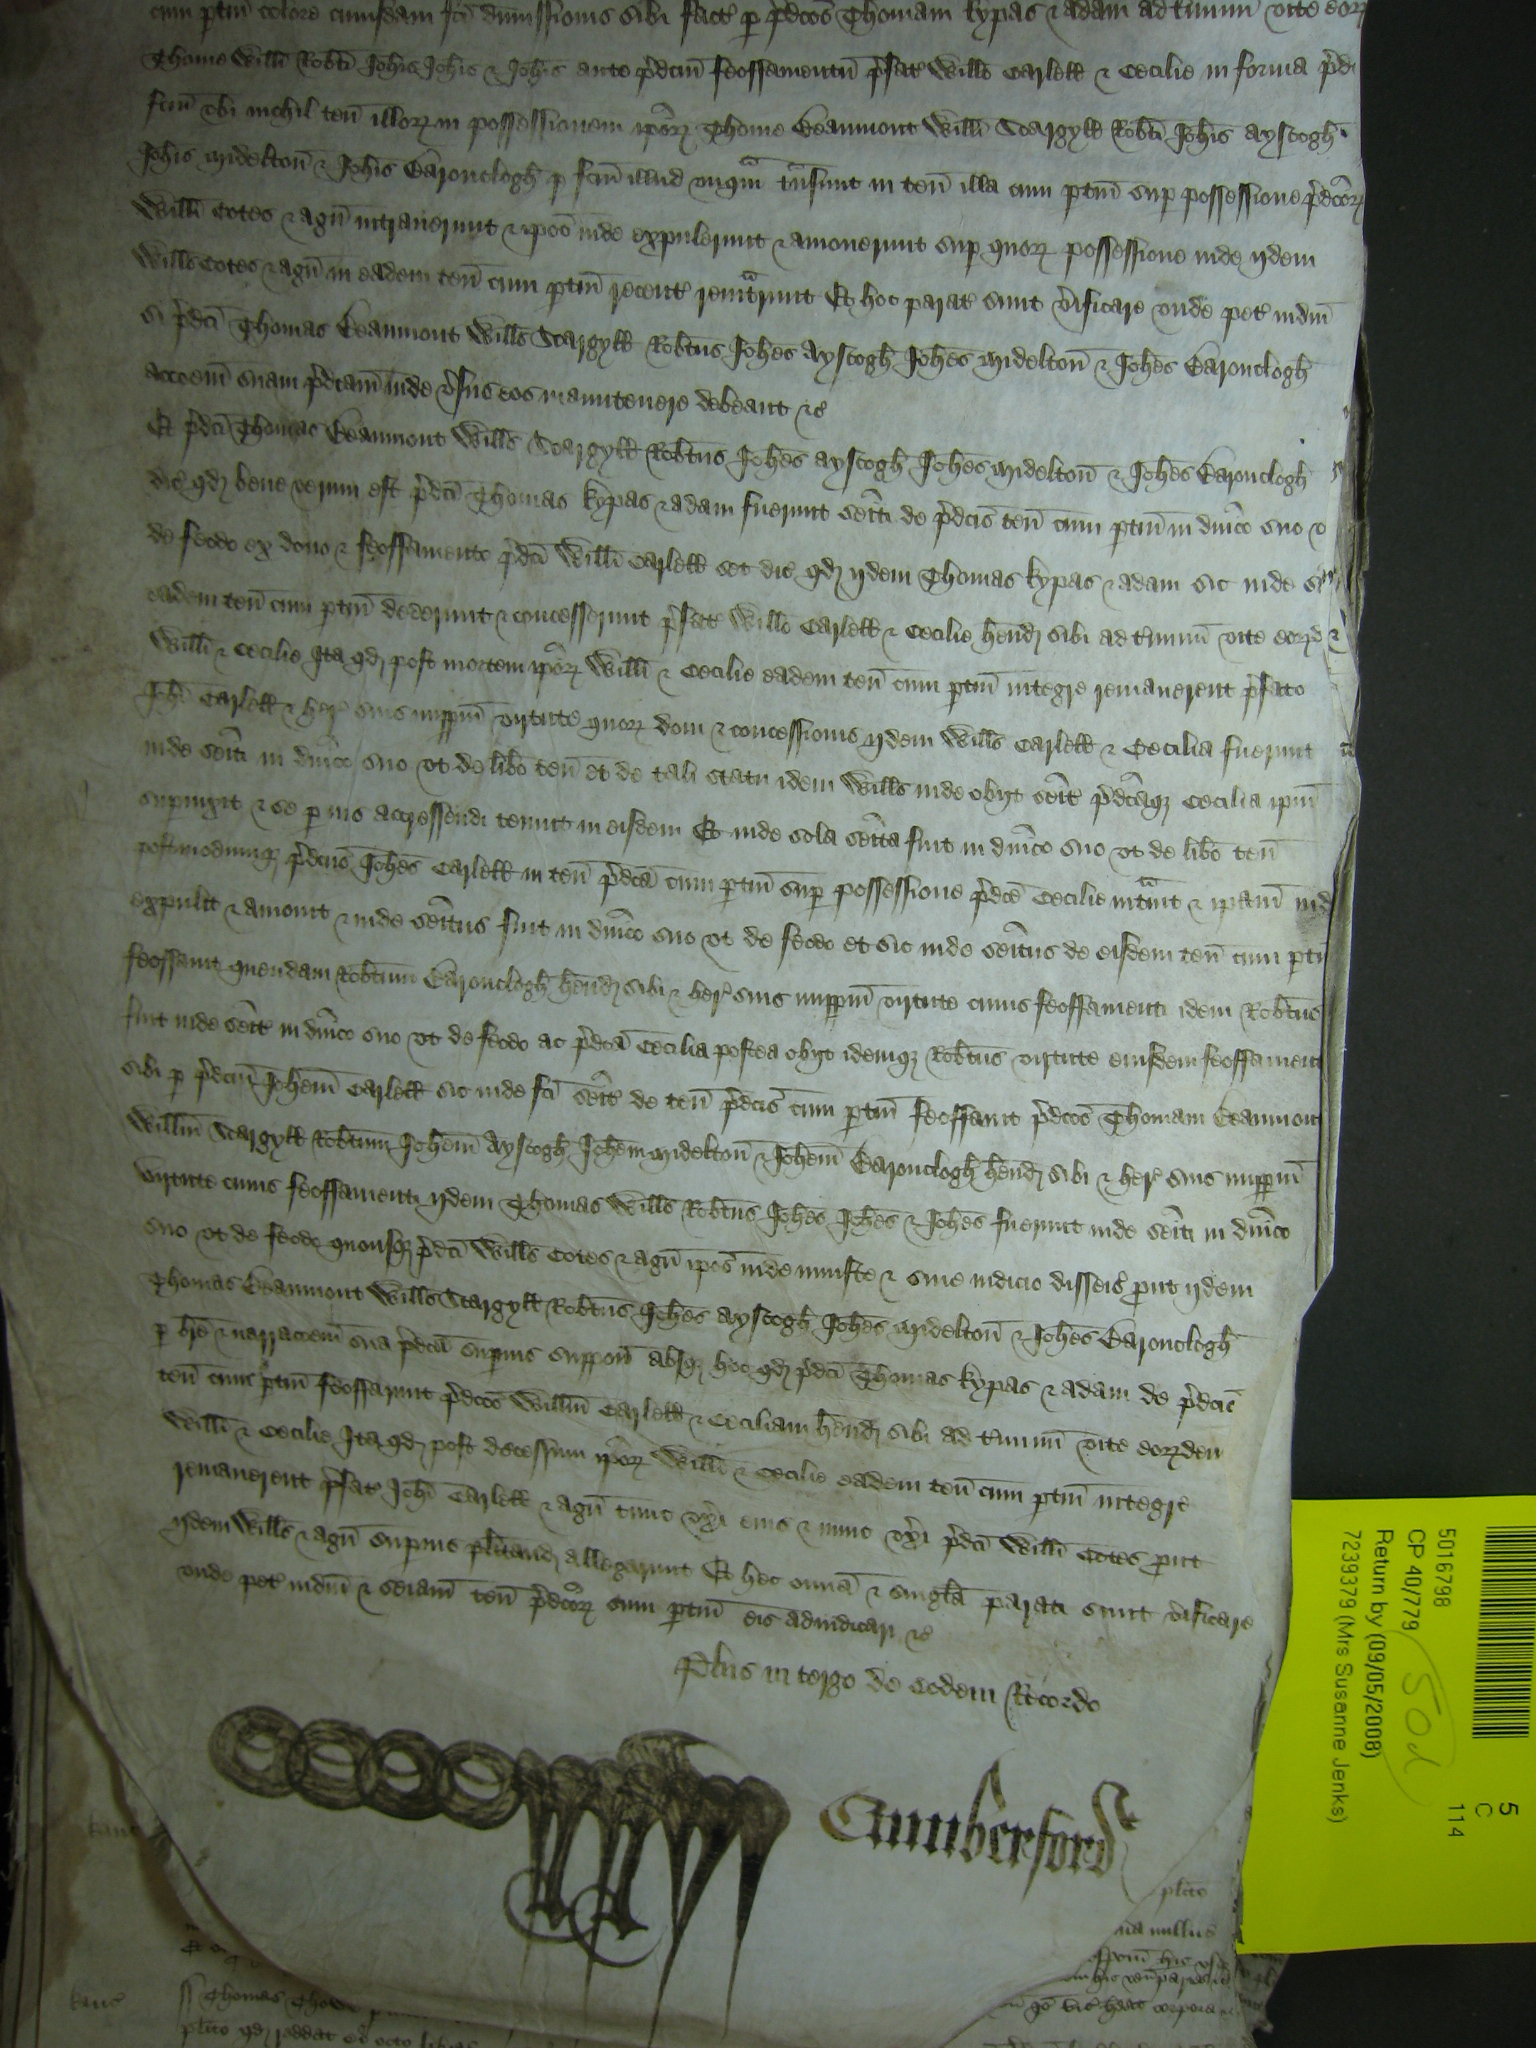 cum ptin colore cuiusdam fci dimissionis sibi fact p p̄dcos Thomam kypas & adam ad tminū vite eorꝝ
Thome Willi Robti Johis Johis & Johis ante p̄dcm̄ feoffamentū p̄fat Willo Carlell & Cecilie in forma p̄d
fcm̄ vbi nichil ten̄ illorꝝ in possessionem ip̄orꝝ Thome Beaumont Willi Scargyll Robti Johis Ayscogh
Johis Midelton̄ & Johis Baronclogh p fcm̄ illud vnqᵃm tᵃnsiuit in ten̄ illa cum ptin̄ sup possessione p̄dcorꝝ
Willi Cotes & agn̄ intrauerunt & ip̄os inde expulerunt & amouerunt sup quorꝝ possessione inde ijdem
Willś Cotes & agn̄ in eadem ten̄ cum ptin̄ recent̄ reintᵃrunt Et hoc parat̄ sunt v̄ificare vnde pet̄ iudm̄
si p̄dci Thomas Beaumont Willś Scargyll Robtus Johes Ayscogh Johes Midelton̄ & Johes Baronclogh
accoem̄ suam p̄dcam̄ inde v̄sus eos manutenere debeant &c
Et p̄dci Thomas Beaumont Willś Scargyll Robtus Johes Ayscogh Johes Midelton̄ & Johes Baronclogh
dic̄ qd bene verum est p̄dci Thomas kypas & adam fuerunt seiti de p̄dcis ten̄ cum ptin̄ in dn̄ico suo v
de feodo ex dono & feoffamento p̄dci Willi Carlell set dic̄ qd ijdem Thomas kypas & adam sic inde
eadem ten̄ cum ptin̄ dederunt & concesserunt p̄fat̄ Willo Carlell & Cecilie hend̄ sibi ad tminū vite eorꝝd
Willi & Cecilie Ita qd post mortem ip̄orꝝ Willi & Cecilie eadem ten̄ cum ptin̄ integre remanerent p̄fato
Johi Carlell & her̄ suis imppm̄ virtute quorꝝ doni & concessionis ijdem Willś Carlell & Cecilia fuerunt
inde seiti in dn̄ico suo vt de libo ten̄ et de tali statu idem Willś inde obijt seit̄ p̄dcaqꝫ Cecilia ip̄m
supuixit & se p ius accressendi tenuit in eisdem Et inde sola seita fuit in dn̄ico suo vt de libo ten̄
postmodumqꝫ p̄dcus Johes Carlell in ten̄ p̄dca cum ptin̄ sup possessione p̄dce Cecilie intᵃuit & ip̄am ind
expulit & amouit & inde seitus fuit in dn̄ico suo vt de feodo et sic inde seitus de eisdem ten̄ cum ptin
feoffauit quendam Robtum Baronclogh hend̄ sibi & her̄ suis imppm̄ virtute cuius feoffamenti idem Robtus
fuit inde seit̄ in dn̄ico suo vt de feodo ac p̄dca Cecilia postea obijt idemqꝫ Robtus virtute eiusdem feoffamenti
sibi p p̄dcm̄ Johem̄ Carlell sic inde fci seit̄ de ten̄ p̄dcis cum ptin̄ feoffauit p̄dcos Thomam Beaumont
Willm̄ Scargyll Robtum Johem̄ Ayscogh Johem̄ Midelton̄ & Johem̄ Baronclogh hend̄ sibi & her̄ suis imppm̄
virtute cuius feoffamenti ijdem Thomas Willś Robtus Johes Johes & Johes fuerunt inde seiti in dn̄ico
suo vt de feodo quousqꝫ p̄dci Willś Cotes & agn̄ ip̄os inde iniuste & sine iudicio disseis̄ put ijdem
Thomas Beaumont Willś Scargyll Robtus Johes Ayscogh Johes Midelton̄ & Johes Baronclogh
p bre & narracoem̄ sua p̄dca supius suppon̄ absqꝫ hoc qd p̄dci Thomas kypas & adam de p̄dcis
ten̄ cum ptin̄ feoffarunt p̄dcos Willm̄ Carlell & Ceciliam hend̄ sibi ad tminū vite eorꝝdem
Willi & Cecilie Ita qd post decessum ip̄orꝝ Willi & Cecilie eadem ten̄ cum ptin̄ integre
remanerent p̄fat̄ Johi Carlell & agn̄ tunc vxi eius & nunc vxi p̄dci Willi Cotes put
ijdem Willś & agn̄ supius plitand̄ allegarunt Et hec omia & singla parati sunt v̄ificare
vnde pet̄ iudm̄ & seisam̄ ten̄ p̄dcorꝝ cum ptin̄ eis adiudicari &c
Plus in tergo de Eodem Recordo
Cumberford
plito
na millus
kanc
kanc
Thomas
plito qd reddat ei octo libras
5016798
CP 40/779
Return by (09/05/2008)
7239379 (Mrs Susanne Jenks)
50d
5
C
114